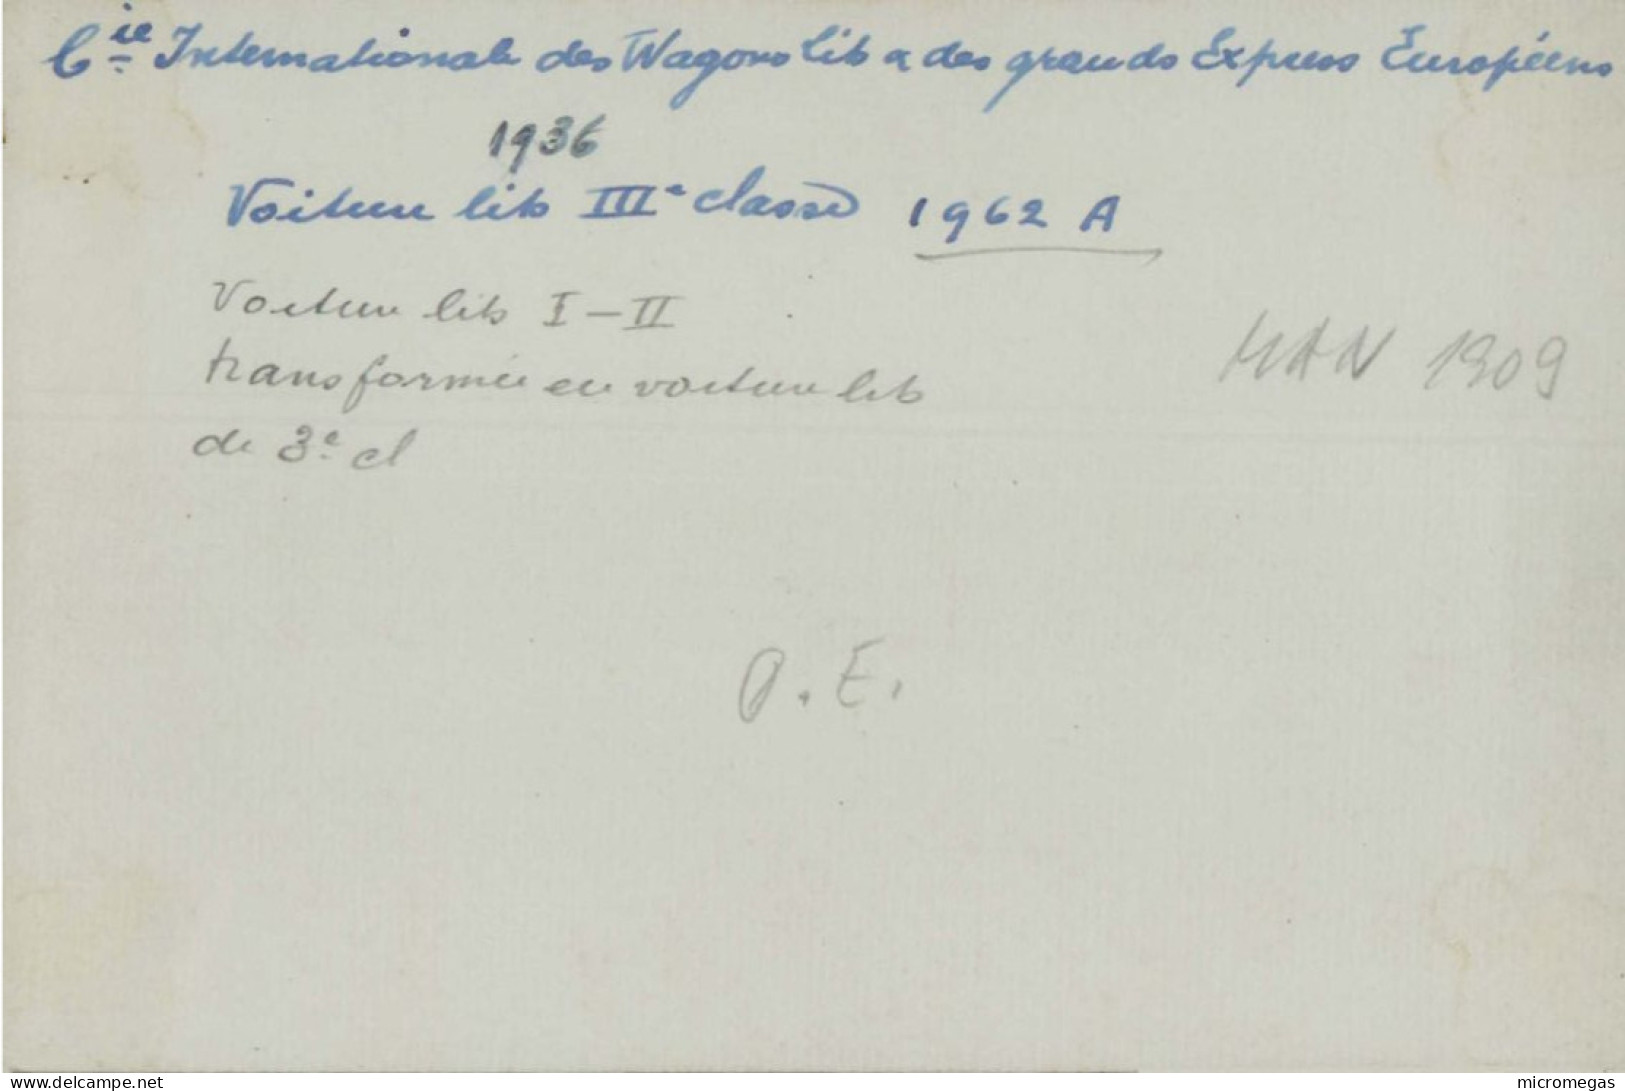 Cie Internationale des Wagons lits & des grands Express Européens
1936
Voiture lits IIIe classe 1962 A
Voiture lits I – II
transformée en voiture lits
de 3e cl
MAN 1909
O. E.
www.delcampe.net
micromegas